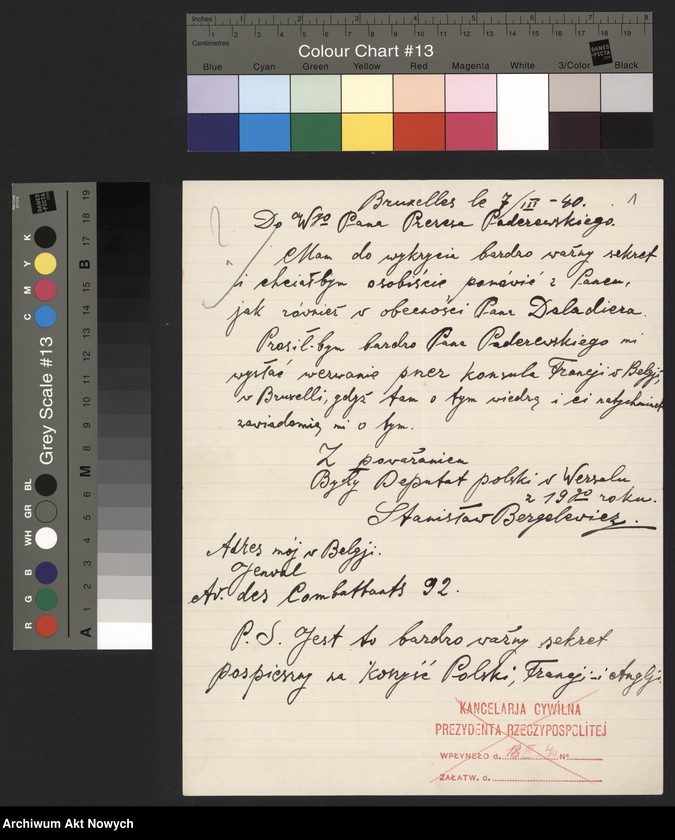 Inches 1 2 3 4 5 6 7 8
Centimetres 1 2 3 4 5 6 7 8 9 10 11 12 13 14 15 16 17 18 19
Colour Chart #13
DANES PICTA
Blue Cyan Green Yellow Red Magenta White 3/Color Black
Grey Scale #13
R G B WH GR BL C M Y K
A 1 2 3 4 5 6 M 8 9 10 11 12 13 14 15 B 16 17 18 19
Bruxelles le 7/III - 40. 1
Do Wgo Pana Prezesa Paderewskiego.
Mam do wykrycia bardzoważny sekret
i chciałbym osobiście pomówić z Panem,
jak również w obecności Pana Daladiera.
Prosił-bym bardzo Pana Paderewskiego mi
wysłać wezwanie przez konsula Francji w Belgji,
w Bruxelli, gdyż tam o tym wiedzą i ci natychmiast
zawiadomią mi o tym.
Z poważaniem
Były Deputat polski w Wersalu
z 1920 roku.
Stanisław Bergelewicz.
Adres mój w Belgji.
Genval
Av. des Combattants 92.
P.S. Jest to bardzo ważny sekret
pospieszny na korzyść Polski, Francji i Anglji.
KANCELARJA CYWILNA
PREZYDENTA RZECZYPOSPOLITEJ
WPŁYNĘŁO d. 18 III 40 No
ZAŁATW. d.
Archiwum Akt Nowych